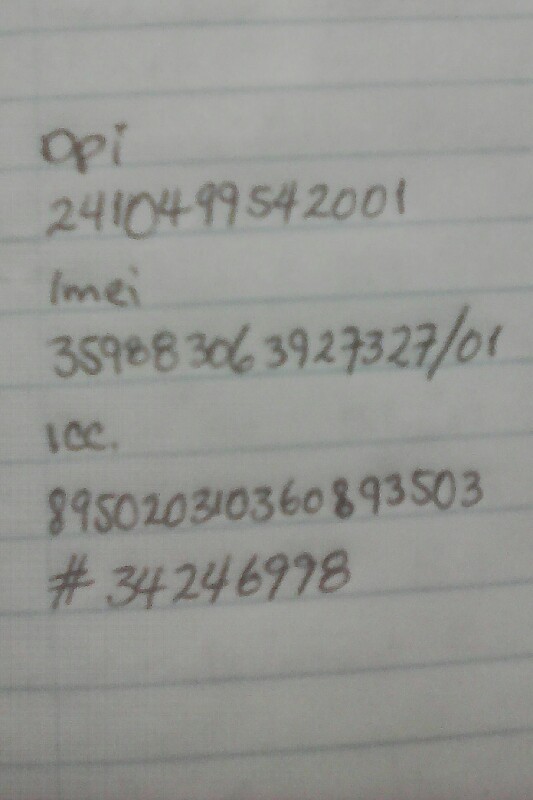 Dpi
2410499542001
Imei
359883063927327/01
icc.
895020310360893503
# 34246998